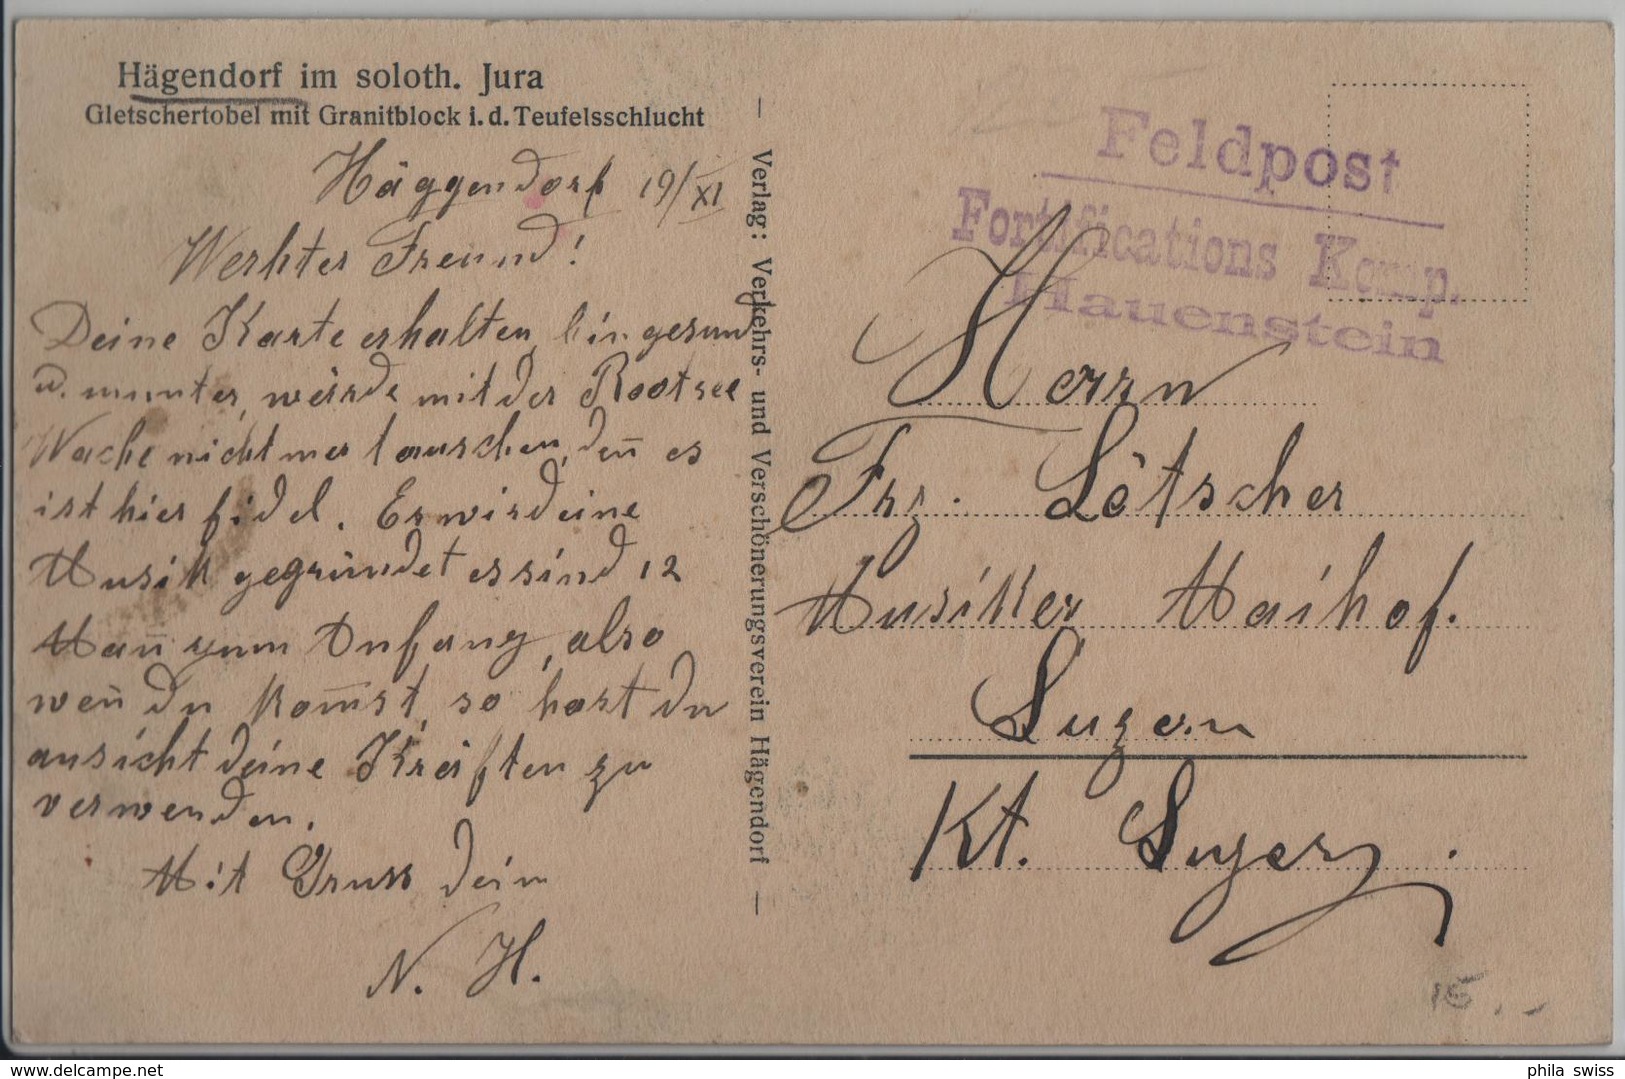 Hägendorf im soloth. Jura
Gletschertobel mit Granitblock i. d. Teufelsschlucht
Häggendorf 19/XI
Werhter Freund!
Deine Karte erhalten, bin gesund
u. munter, würde mit der Rootsee
Wache nicht mer tauschen, den̄ es
ist hier fidel. Es wird eine
Musik gegründet es sind 12
Man̄ zum Anfang, also
wen̄ du kom̄st, so hast du
ansicht deine Kräften zu
verwenden.
Mit Gruss dein
N. H.
— Verlag: Verkehrs- und Verschönerungsverein Hägendorf —
Feldpost
Fortifications Komp.
Hauenstein
Herrn
Frz. Lötscher
Musiker Maihof.
Luzern
Kt. Luzern.
15.-
phila swiss
www.delcampe.net